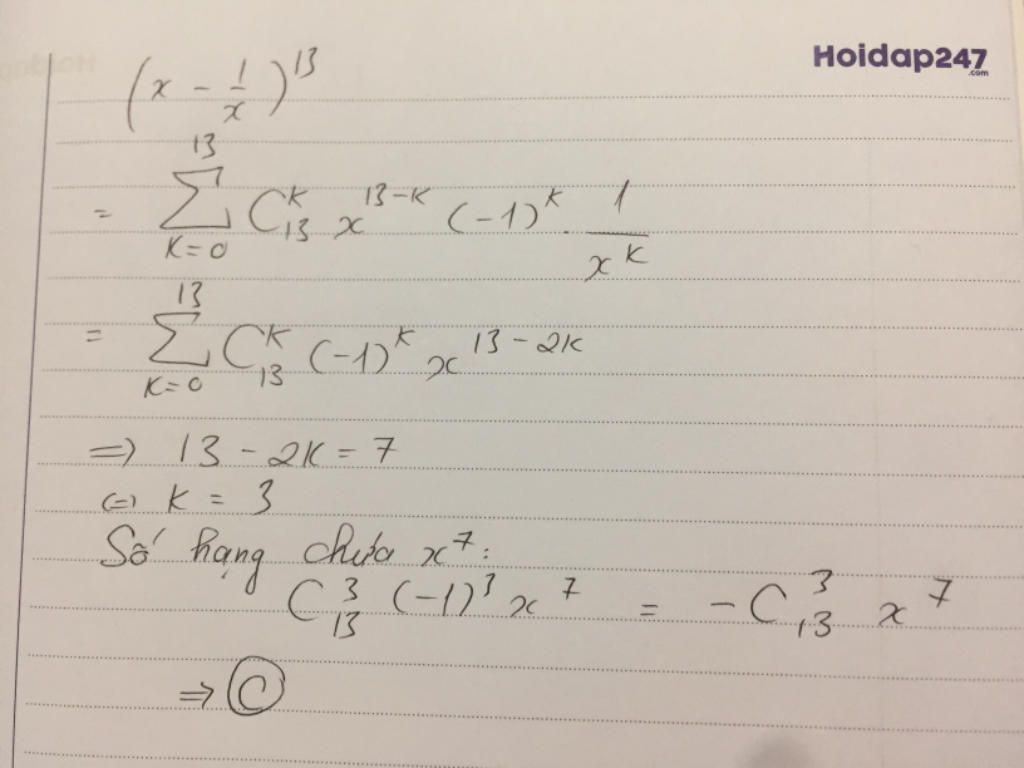 Hoidap247
.com
(x - 1/x)^13
= ∑_{K=0}^{13} C_{13}^{K} x^{13-K} (-1)^K . 1/x^K
= ∑_{K=0}^{13} C_{13}^{K} (-1)^K x^{13-2K}
=> 13 - 2K = 7
(=) K = 3
Số hạng chứa x^7:
C_{13}^{3} (-1)^3 x^7 = - C_{13}^{3} x^7
=> C